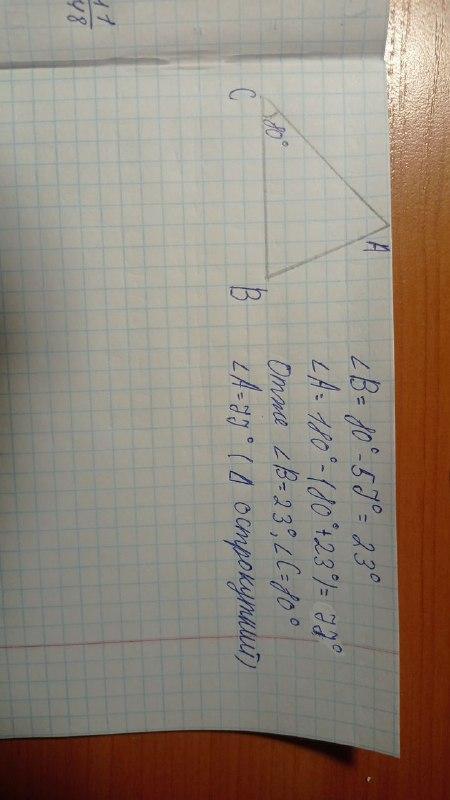 11
48
C
80°
A
B
∠B = 80° - 57° = 23°
∠A = 180° - (80° + 23°) = 77°
Отже ∠B = 23°, ∠C = 80°
∠A = 77° (Δ острокутний)